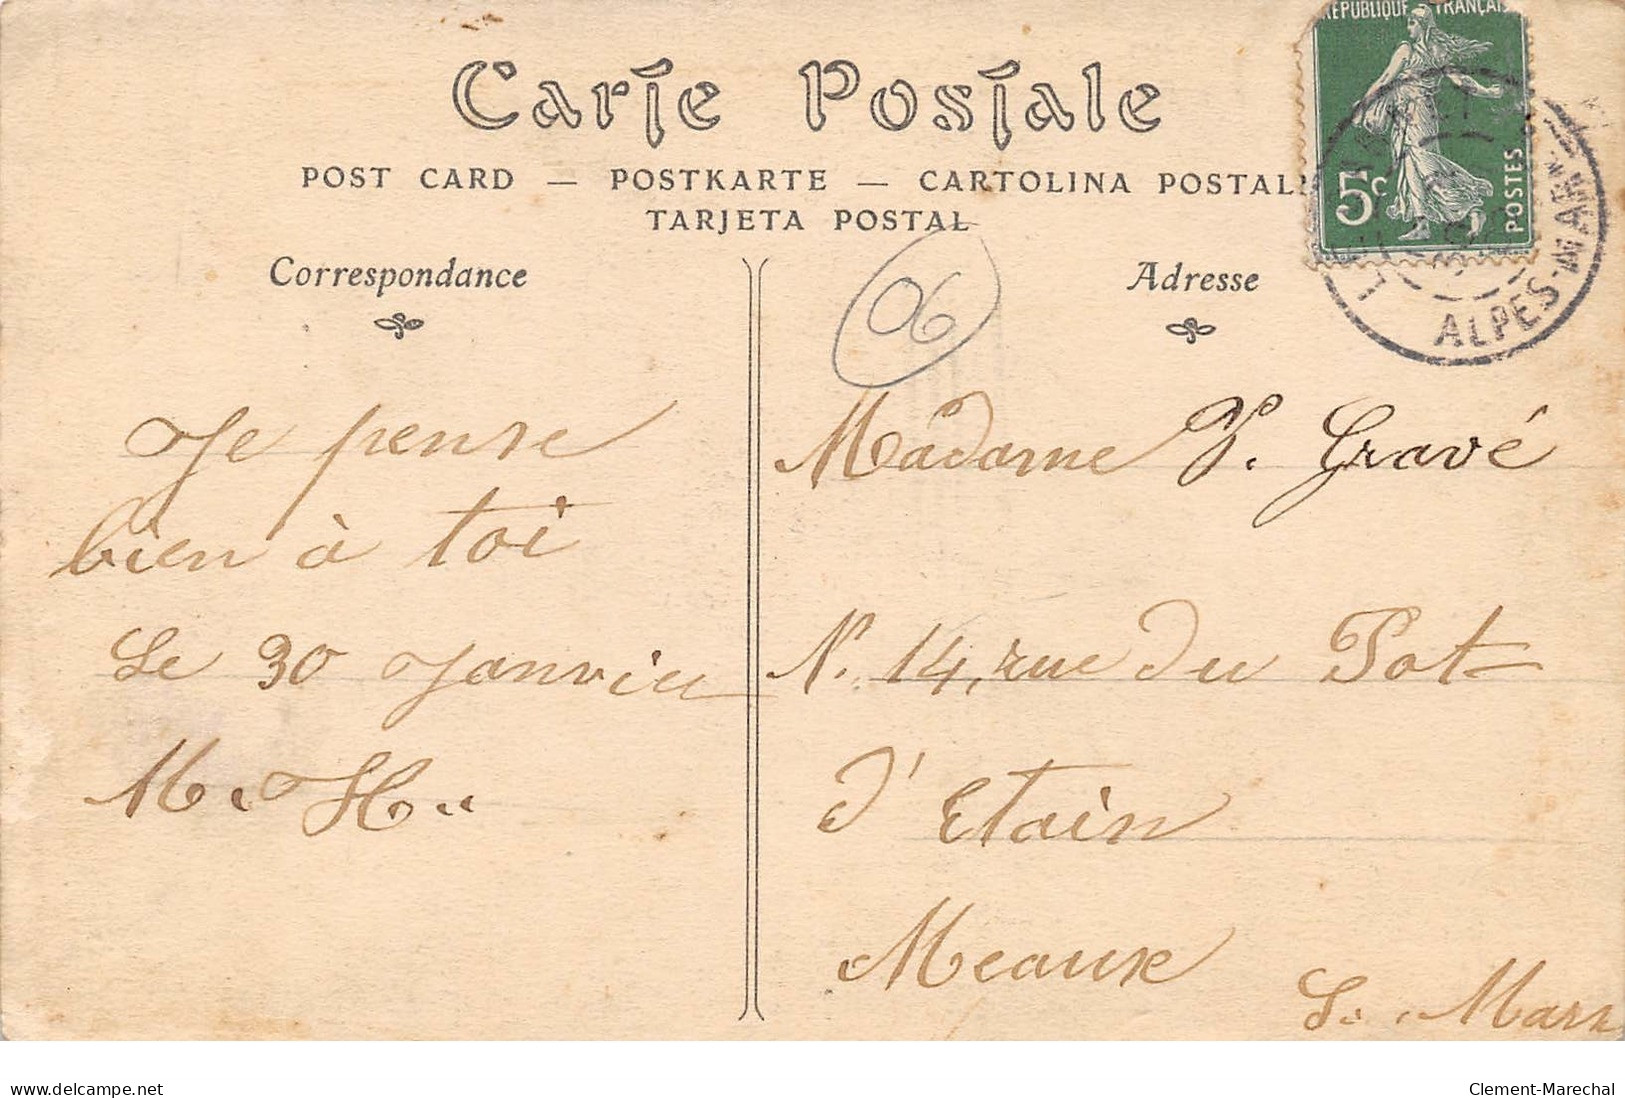 Carte Postale
POST CARD — POSTKARTE — CARTOLINA POSTAL
TARJETA POSTAL
RÉPUBLIQUE FRANÇAIS
5c
POSTES
ALPES-MAR
Correspondance
Adresse
06
Je pense
bien à toi
Le 30 Janvier
M. H.
Madame P. Gravé
N. 14, rue du Pot
d'Etain
Meaux
S. Mar
www.delcampe.net
Clement-Marechal